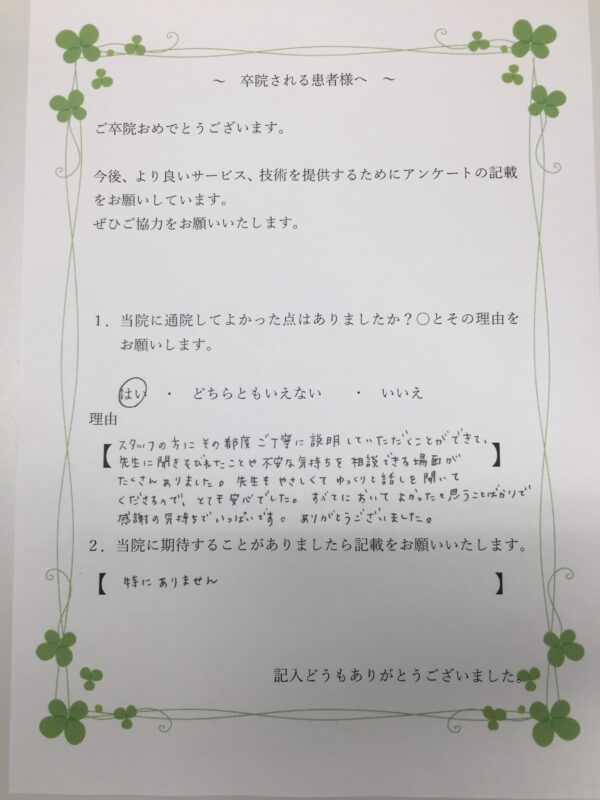 ～　卒院される患者様へ　～
ご卒院おめでとうございます。
今後、より良いサービス、技術を提供するためにアンケートの記載
をお願いしています。
ぜひご協力をお願いいたします。
１．当院に通院してよかった点はありましたか？〇とその理由を
お願いします。
はい　・　どちらともいえない　・　いいえ
理由
【スタッフの方にその都度ご丁寧に説明していただくことができて、
先生に聞きそびれたことや不安な気持ちを相談できる場面が】
たくさんありました。先生もやさしくてゆっくりと話しを聞いて
くださるので、とても安心でした。すべてにおいてよかったと思うことばかりで
感謝の気持ちでいっぱいです。ありがとうございました。
２．当院に期待することがありましたら記載をお願いいたします。
【特にありません】
記入どうもありがとうございました。